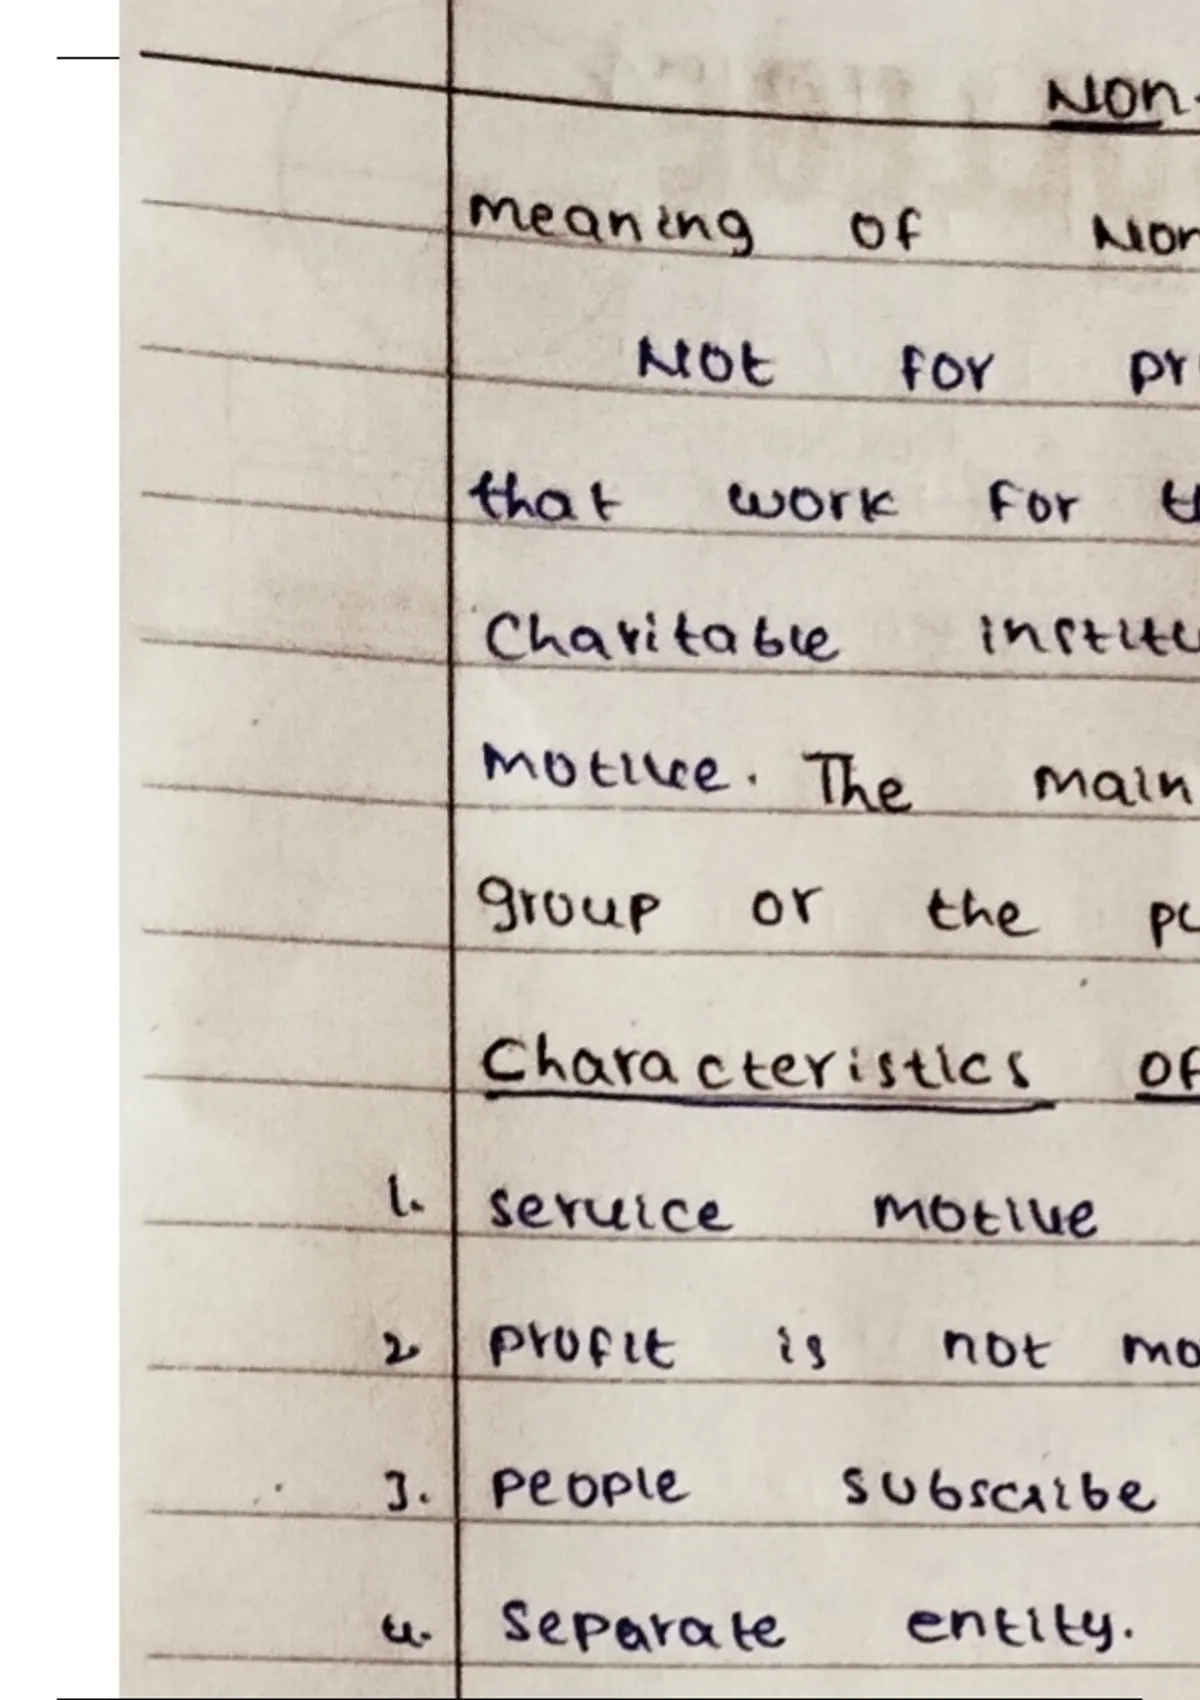 Non-
meaning of Non
Not for pr
that work for t
Charitable institu
motive. The main
group or the pu
Characteristics of
1. service motive
2. profit is not mo
3. people subscribe
4. separate entity.